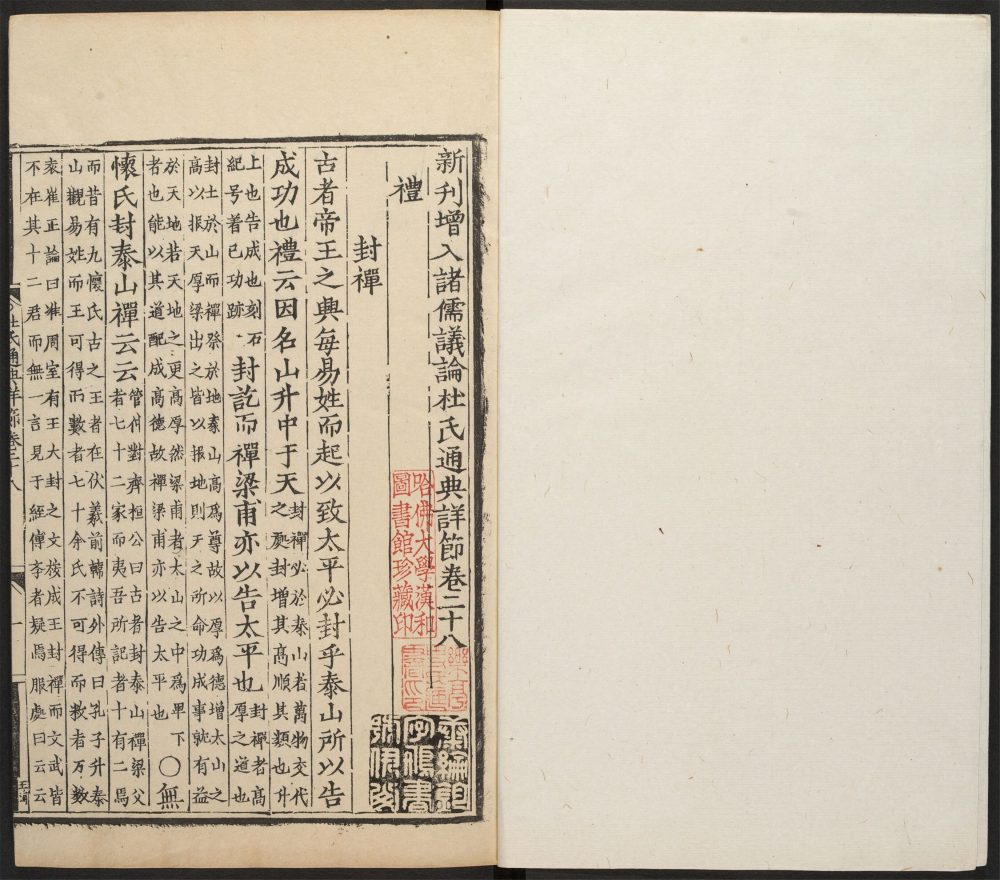 新刊增入諸儒議論杜氏通典詳節卷二十八
哈佛大學漢和
圖書館珍藏印
禮
封禪
古者帝王之興每易姓而起以致太平必封乎泰山所以告
成功也禮云因名山升中于天
封禪必於泰山者萬物交代
之處封增其高順其類也升
上也告成也刻石
紀号着己功跡
封訖而禪梁甫亦以告太平也
封禪者高
厚之道也
封土於山而禪祭於地泰山高爲尊故以厚爲德增太山之
高以报天厚梁出之皆以报地則天之所命功成事就有益
於天地若天地之更高厚然梁甫者太山之中爲卑下
者也能以其道配成高德故禪梁甫亦以告太平也
〇無
懷氏封泰山禪云云
管仲對齊桓公曰古者封泰山禪梁父
者七十二家而夷吾所記者十有二焉
而昔有九懷氏古之王者在伏羲前韓詩外傳曰孔子升泰
山觀易姓而王可得而數者七十余氏不可得而数者万数
袁崔正論曰唯周室有王大封之文按成王封禪而文武皆
不在其十二君而無一言見于經傳李者疑焉服處曰云云
杜氏通典詳節卷二十八
一